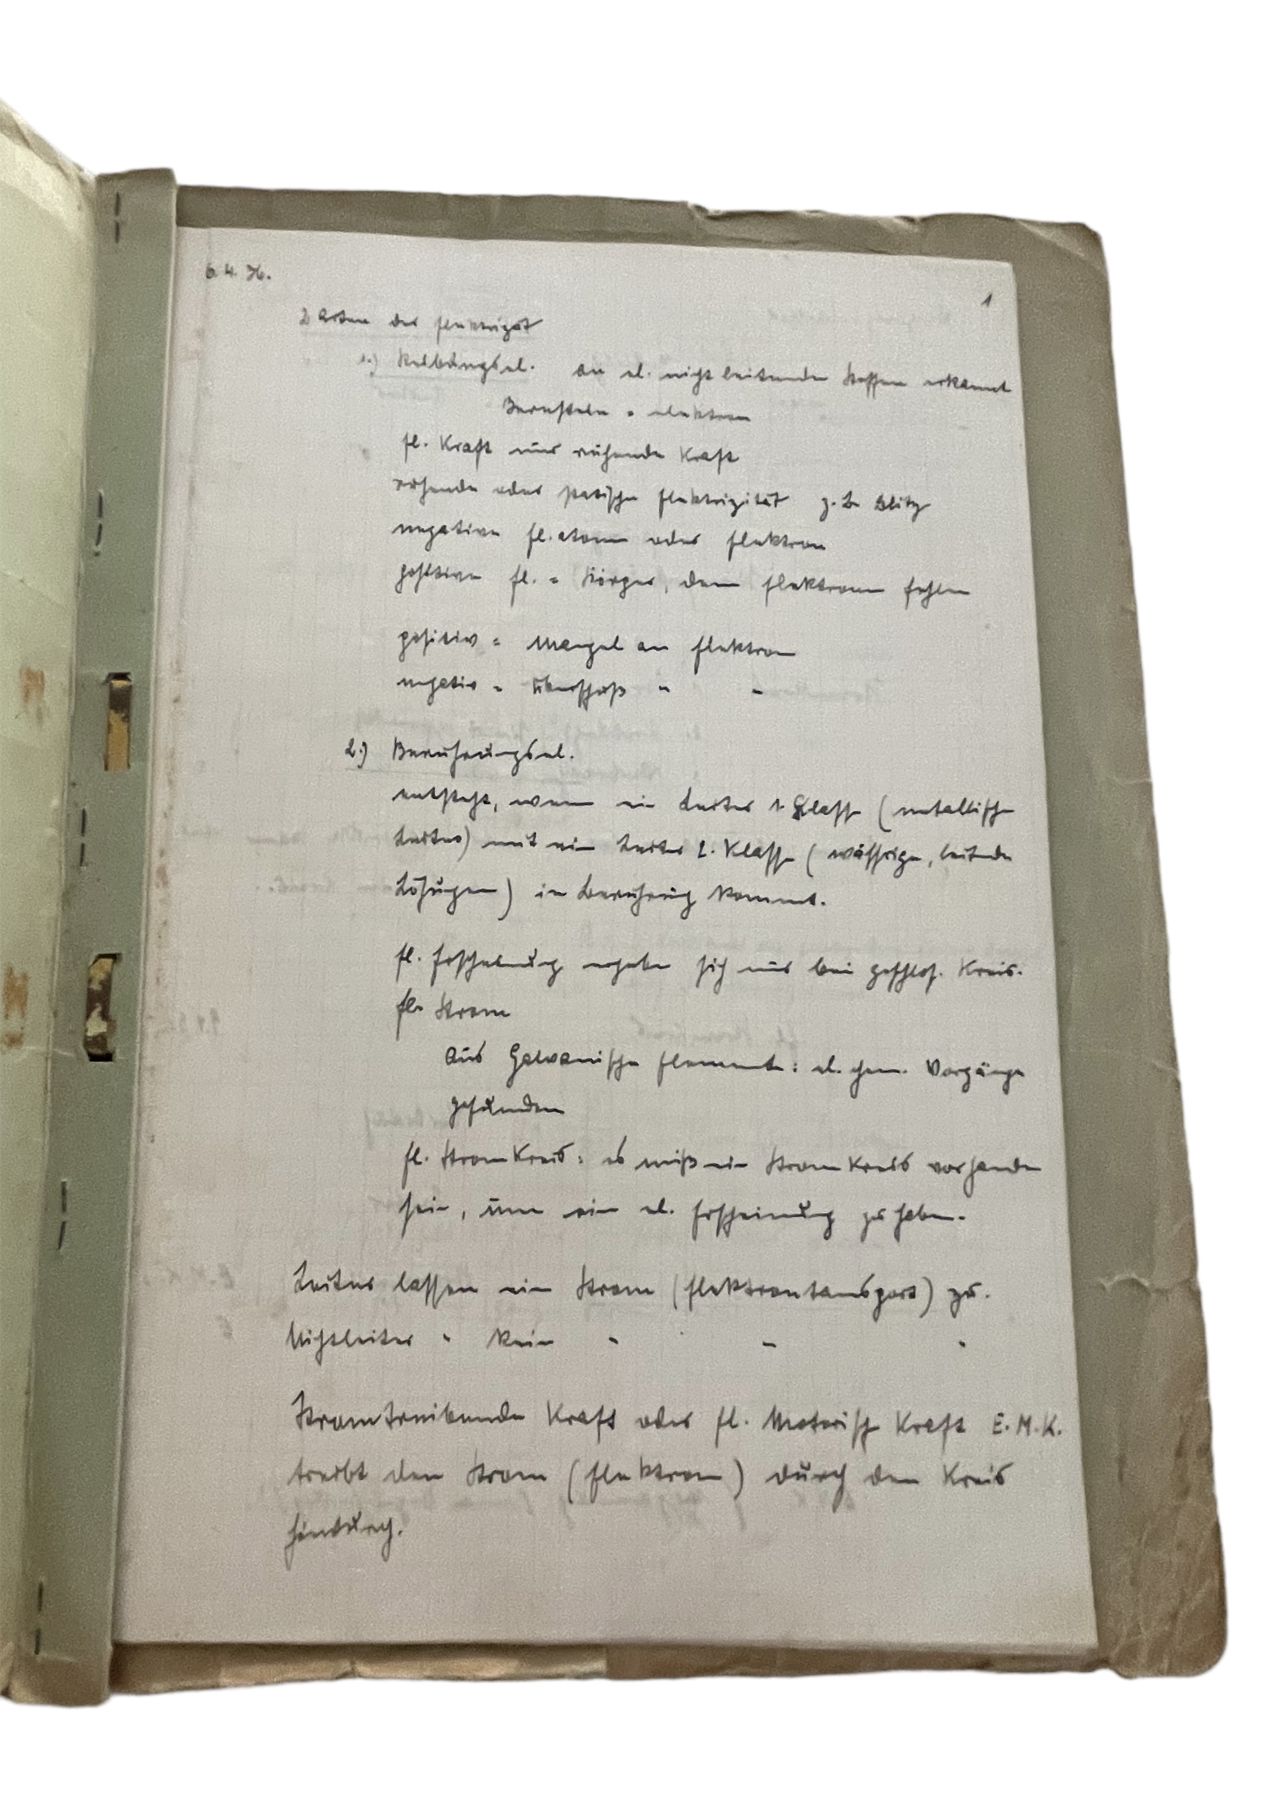 6.4.36.
1
2 Arten der Elektrizät
1.) Reibungsel. an el. nicht leitenden Stoffen erkannt
Bernstein = elektron
El. Kraft nur ruhende Kraft
ruhende oder statische Elektrizität z.B. Blitz
negative El. atom oder Elektron
positive El. = Körper, dem Elektronen fehlen
positiv = Mangel an Elektron
negativ = Überschuß " "
2.) Berührungsel.
entsteht, wenn ein Leiter 1. Klasse (metallische
Leiter) mit ein Leiter 2. Klasse (wässrige, leitende
Lösungen) in Berührung kommt.
El. Erscheinung ergeben sich nur bei geschlos. Kreis.
El. Strom
Aus Galvanische Elemente: el. chem. Vorgänge
gefunden
El. StromKreis: es muß ein StromKreis vorhanden
sein, um ein el. Erscheinung zu haben.
Leiter lassen ein Strom (Elektrontansport) zu.
Nichtleiter " kein " " "
Stromtreibende Kraft oder El. Motorisch Kraft E.M.K.
treibt den Strom (Elektron) durch den Kreis
hindurch.